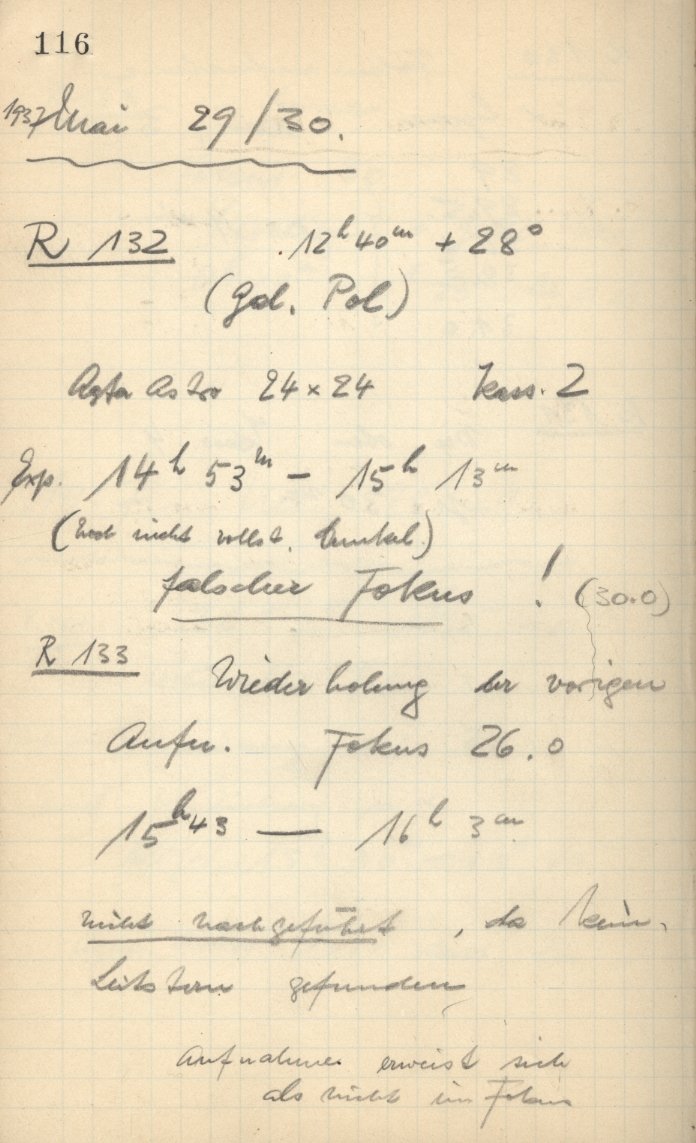 116
1937 Mai 29/30.
R 132 12h 40m + 28°
(Gal. Pol)
Agfa Astro 24 × 24 Kass. 2
Exp. 14h 53m – 15h 13m
(noch nicht vollst. dunkel.)
falscher Fokus ! (30.0)
R 133 Wiederholung der vorigen
Aufn. Fokus 26.0
15h 43 — 16h 3m
nicht nachgeführt, da kein
Leitstern gefunden
Aufnahme erweist sich
als nicht im Fokus